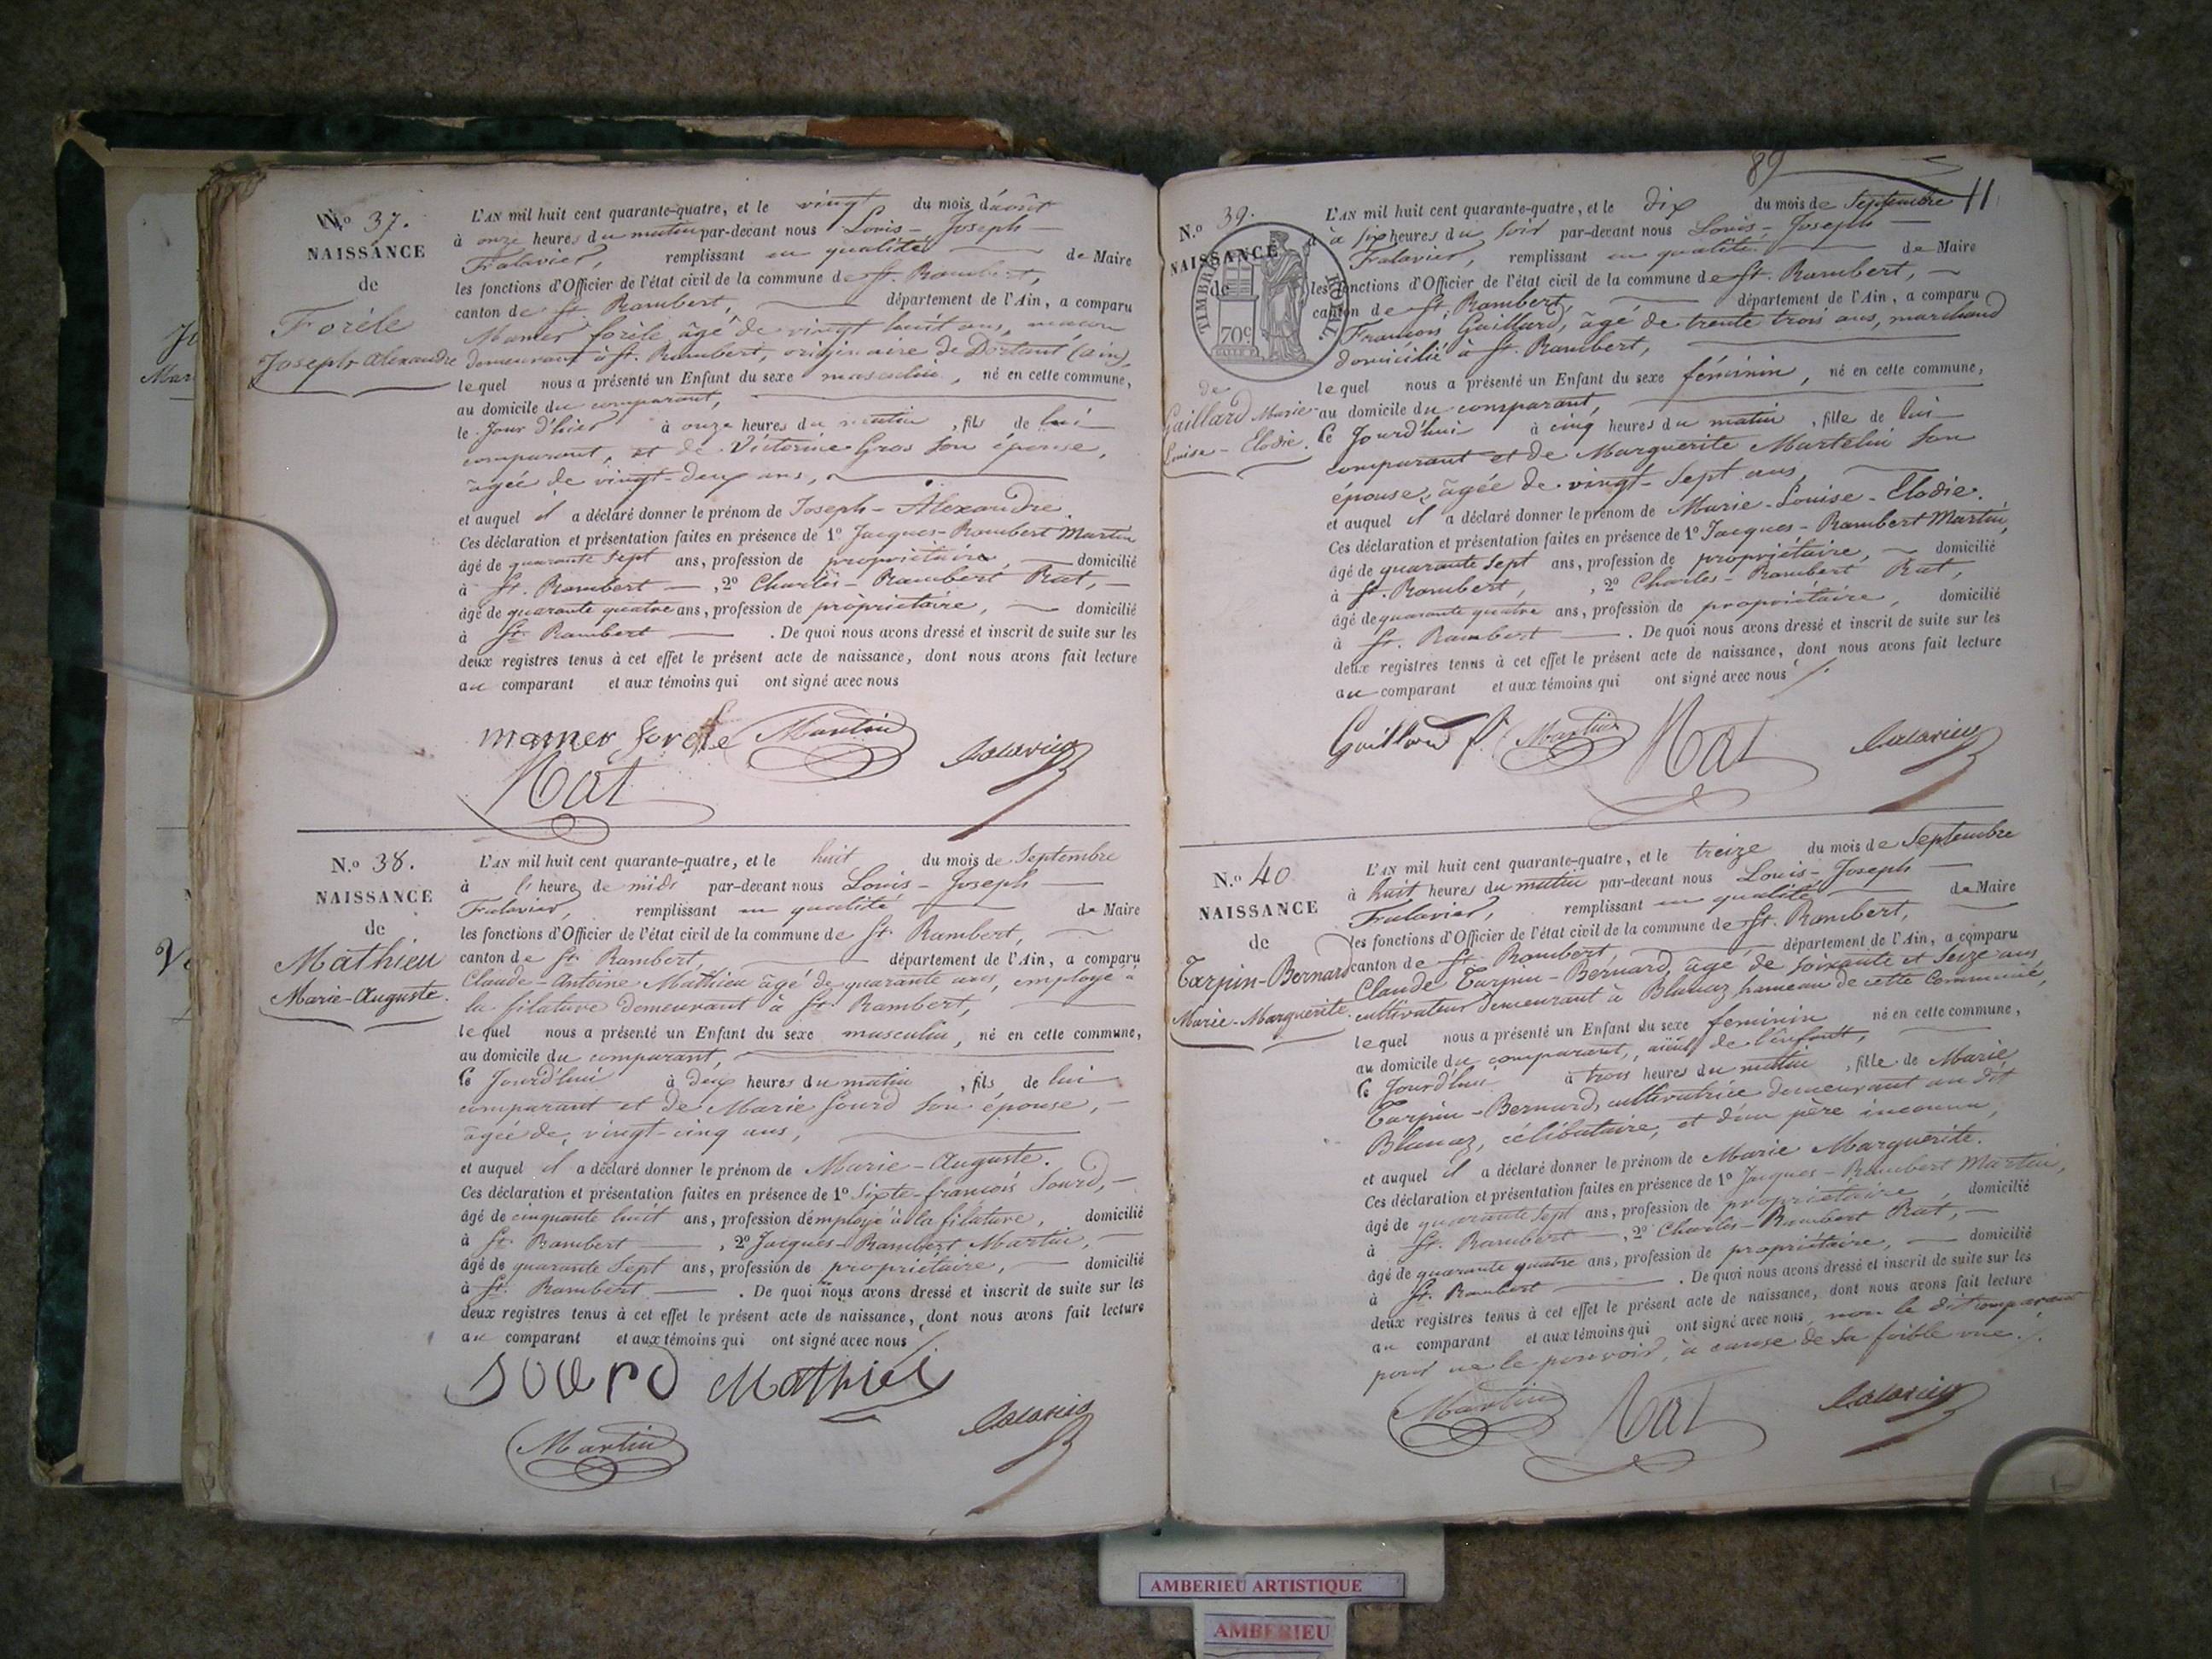 N.º 37.
NAISSANCE
de
Forèle
Joseph-Alexandre
L'AN mil huit cent quarante-quatre, et le vingt du mois d'août
à onze heures du matin par-devant nous Louis-Joseph
remplissant en qualité de Maire
les fonctions d'Officier de l'état civil de la commune de St. Rambert,
canton de St. Rambert, département de l'Ain, a comparu
Mamer forèle âgé de vingt huit ans, maçon
demeurant à St. Rambert, originaire de Dortant (ain),
lequel nous a présenté un Enfant du sexe masculin, né en cette commune,
au domicile du comparant,
le Jour d'hier à onze heures du matin, fils de lui
comparant, et de Victorine Gros son épouse,
âgée de vingt-deux ans,
et auquel il a déclaré donner le prénom de Joseph-Alexandre.
Ces déclaration et présentation faites en présence de 1º Jacques-Rambert Martin
âgé de quarante sept ans, profession de propriétaire, domicilié
à St. Rambert, 2º Charles-Rambert Rat,
âgé de quarante quatre ans, profession de propriétaire, domicilié
à St. Rambert. De quoi nous avons dressé et inscrit de suite sur les
deux registres tenus à cet effet le présent acte de naissance, dont nous avons fait lecture
au comparant et aux témoins qui ont signé avec nous
mamer forèle Martin
Rat
N.º 38.
NAISSANCE
de
Mathieu
Marie-Auguste.
L'AN mil huit cent quarante-quatre, et le huit du mois de Septembre
à heure de midi par-devant nous Louis-Joseph
remplissant en qualité de Maire
les fonctions d'Officier de l'état civil de la commune de St. Rambert,
canton de St. Rambert, département de l'Ain, a comparu
Claude-Antoine Mathieu âgé de quarante ans, employé à
la filature demeurant à St. Rambert,
lequel nous a présenté un Enfant du sexe masculin, né en cette commune,
au domicile du comparant,
le Jourd'hui à deux heures du matin, fils de lui
comparant et de Marie Sourd son épouse,
âgée de vingt-cinq ans,
et auquel il a déclaré donner le prénom de Marie-Auguste.
Ces déclaration et présentation faites en présence de 1º Sixte-françois Sourd,
âgé de cinquante huit ans, profession d'employé à la filature, domicilié
à St. Rambert, 2º Jacques-Rambert Martin,
âgé de quarante Sept ans, profession de propriétaire, domicilié
à St. Rambert. De quoi nous avons dressé et inscrit de suite sur les
deux registres tenus à cet effet le présent acte de naissance, dont nous avons fait lecture
au comparant et aux témoins qui ont signé avec nous
Sourd Mathieu
Martin
89
11
N.º 39.
NAISSANCE
de
TIMBRE ROYAL
70c
de
Gaillard Marie-
Louise-Elodie.
L'AN mil huit cent quarante-quatre, et le dix du mois de Septembre
à six heures du soir par-devant nous Louis-Joseph
remplissant en qualité de Maire
les fonctions d'Officier de l'état civil de la commune de St. Rambert,
canton de St. Rambert, département de l'Ain, a comparu
François Gaillard, âgé de trente trois ans, marchand
domicilié à St. Rambert,
lequel nous a présenté un Enfant du sexe féminin, né en cette commune,
au domicile du comparant,
le Jourd'hui à cinq heures du matin, fille de lui
comparant et de Marguerite Martelin son
épouse, âgée de vingt-Sept ans,
et auquel il a déclaré donner le prénom de Marie-Louise-Elodie.
Ces déclaration et présentation faites en présence de 1º Jacques-Rambert Martin,
âgé de quarante sept ans, profession de propriétaire, domicilié
à St. Rambert, 2º Charles-Rambert Rat,
âgé de quarante quatre ans, profession de propriétaire, domicilié
à St. Rambert. De quoi nous avons dressé et inscrit de suite sur les
deux registres tenus à cet effet le présent acte de naissance, dont nous avons fait lecture
au comparant et aux témoins qui ont signé avec nous
Gaillard f. Martin Rat
N.º 40
NAISSANCE
de
Tarpin-Bernard
Marie-Marguerite.
L'AN mil huit cent quarante-quatre, et le treize du mois de Septembre
à huit heures du matin par-devant nous Louis-Joseph
remplissant en qualité de Maire
les fonctions d'Officier de l'état civil de la commune de St. Rambert,
canton de St. Rambert, département de l'Ain, a comparu
Claude Tarpin-Bernard, âgé de soixante et seize ans,
cultivateur demeurant à Blanaz, hameau de cette Commune,
lequel nous a présenté un Enfant du sexe feminin né en cette commune,
au domicile du comparant, aïeul de l'enfant,
le Jourd'hui à trois heures du matin, fille de Marie
Tarpin-Bernard, cultivatrice demeurant au dit
Blanaz, célibataire, et d'un père inconnu,
et auquel il a déclaré donner le prénom de Marie Marguerite.
Ces déclaration et présentation faites en présence de 1º Jacques-Rambert Martin,
âgé de quarante sept ans, profession de propriétaire, domicilié
à St. Rambert, 2º Charles-Rambert Rat,
âgé de quarante quatre ans, profession de propriétaire, domicilié
à St. Rambert. De quoi nous avons dressé et inscrit de suite sur les
deux registres tenus à cet effet le présent acte de naissance, dont nous avons fait lecture
au comparant et aux témoins qui ont signé avec nous, non le dit comparant
pour ne le pouvoir, à cause de sa foible vue.
Martin Rat
AMBERIEU ARTISTIQUE
AMBERIEU